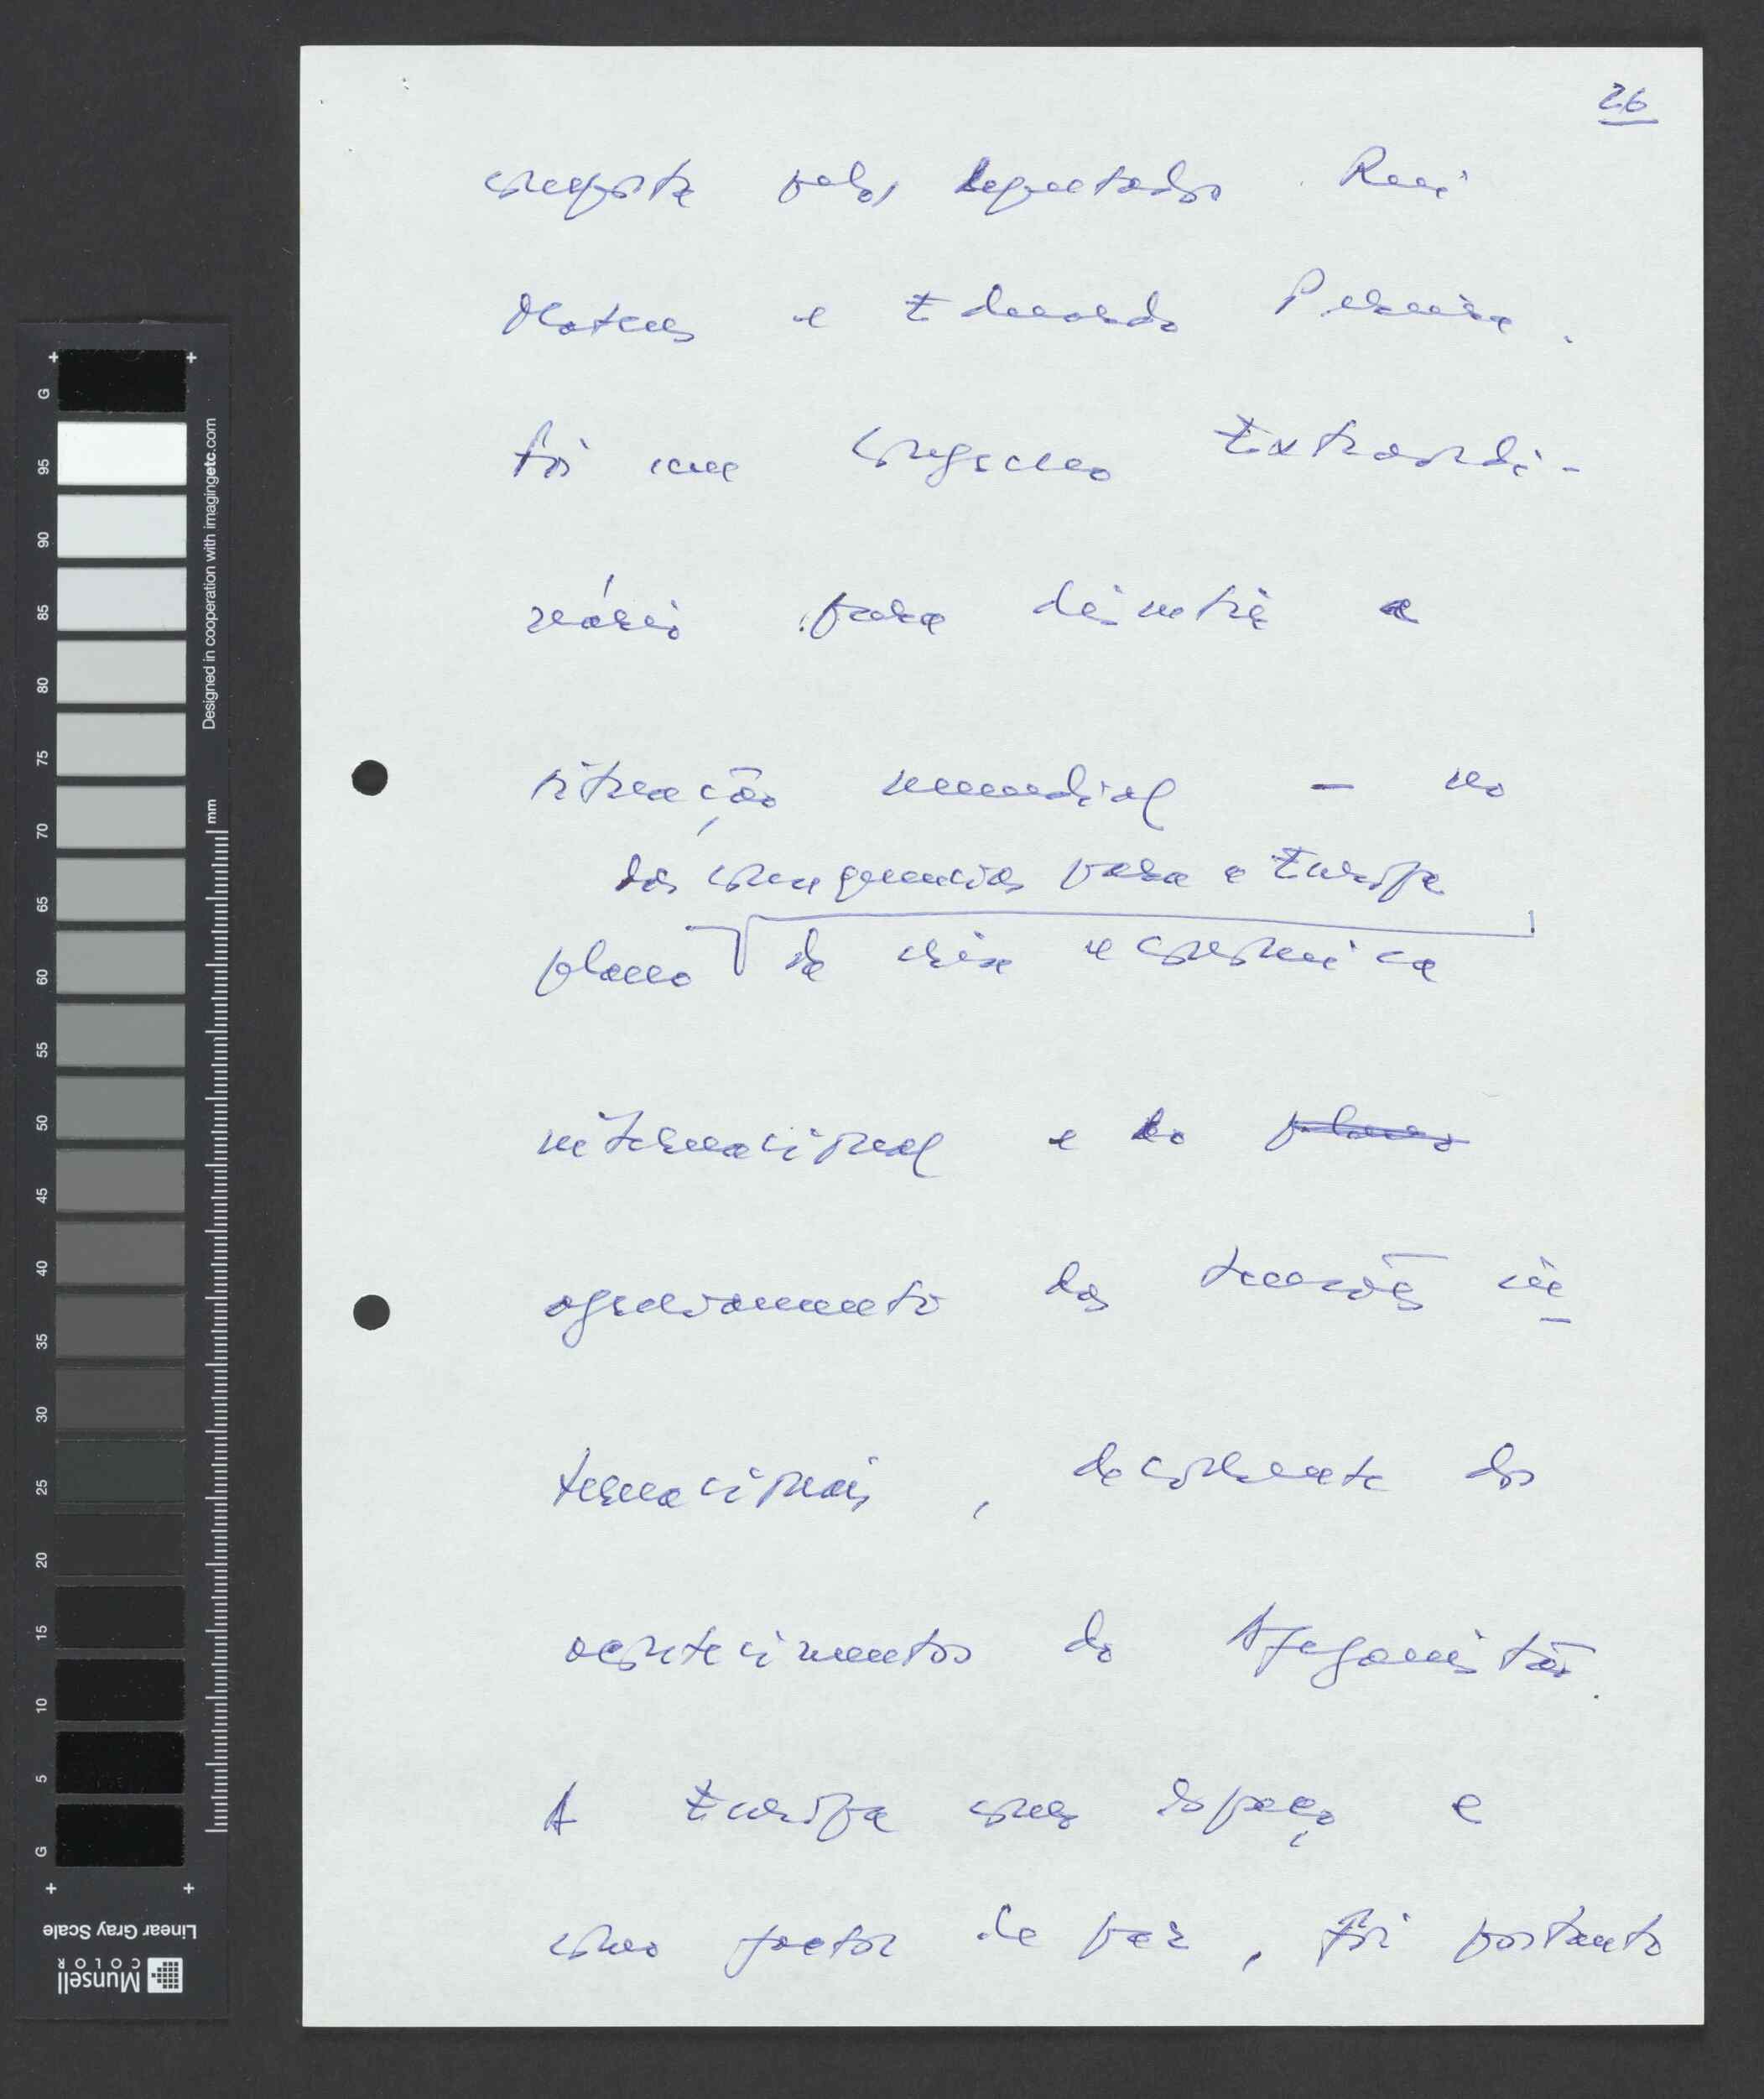 26
composta pelos deputados Rui
Mateus e Eduardo Pereira.
Foi um Congresso Extraordi-
nário para discutir a
situação mundial - no
das consequências para a Europa
plano da crise economica
internacional e do plano
agravamento das tensões in
ternacionais, decorrente dos
acontecimentos do Afeganistão.
A Europa como espaço e
como factor de paz, foi portanto
G
95
90
85
80
75
70
65
60
55
50
45
40
35
30
25
20
15
10
5
G
Designed in cooperation with imagingetc.com
mm
Linear Gray Scale
Munsell
COLOR